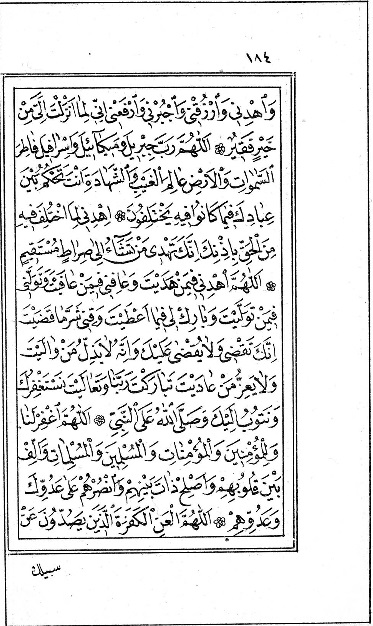 ١٨٤
وَاهْدِنِي وَارْزُقْنِي وَاجْبُرْنِي وَارْفَعْنِي اِنِّي لِمَا اَنْزَلْتَ اِلَيَّ مِنْ
خَيْرٍ فَقِيْرٌ ۞ اَللّٰهُمَّ رَبَّ جِبْرِيْلَ وَمِيْكَائِيْلَ وَاِسْرَافِيْلَ فَاطِرَ
السَّمٰوَاتِ وَالْاَرْضِ عَالِمَ الْغَيْبِ وَالشَّهَادَةِ اَنْتَ تَحْكُمُ بَيْنَ
عِبَادِكَ فِيْمَا كَانُوْا فِيْهِ يَخْتَلِفُوْنَ ۞ اِهْدِنِي لِمَا اخْتُلِفَ فِيْهِ
مِنَ الْحَقِّ بِاِذْنِكَ اِنَّكَ تَهْدِي مَنْ تَشَاءُ اِلٰى صِرَاطٍ مُسْتَقِيْمٍ
۞ اَللّٰهُمَّ اهْدِنِي فِيْمَنْ هَدَيْتَ وَعَافِنِي فِيْمَنْ عَافَيْتَ وَتَوَلَّنِي
فِيْمَنْ تَوَلَّيْتَ وَبَارِكْ لِي فِيْمَا اَعْطَيْتَ وَقِنِي شَرَّ مَا قَضَيْتَ
اِنَّكَ تَقْضِي وَلَا يُقْضٰى عَلَيْكَ وَاِنَّهُ لَا يَذِلُّ مَنْ وَالَيْتَ
وَلَا يَعِزُّ مَنْ عَادَيْتَ تَبَارَكْتَ رَبَّنَا وَتَعَالَيْتَ نَسْتَغْفِرُكَ
وَنَتُوْبُ اِلَيْكَ وَصَلَّى اللّٰهُ عَلَى النَّبِيِّ ۞ اَللّٰهُمَّ اغْفِرْ لَنَا
وَلِلْمُؤْمِنِيْنَ وَالْمُؤْمِنَاتِ وَالْمُسْلِمِيْنَ وَالْمُسْلِمَاتِ وَاَلِّفْ
بَيْنَ قُلُوْبِهِمْ وَاَصْلِحْ ذَاتَ بَيْنِهِمْ وَانْصُرْهُمْ عَلٰى عَدُوِّكَ
وَعَدُوِّهِمْ ۞ اَللّٰهُمَّ الْعَنِ الْكَفَرَةَ الَّذِيْنَ يَصُدُّوْنَ عَنْ
سبيلك